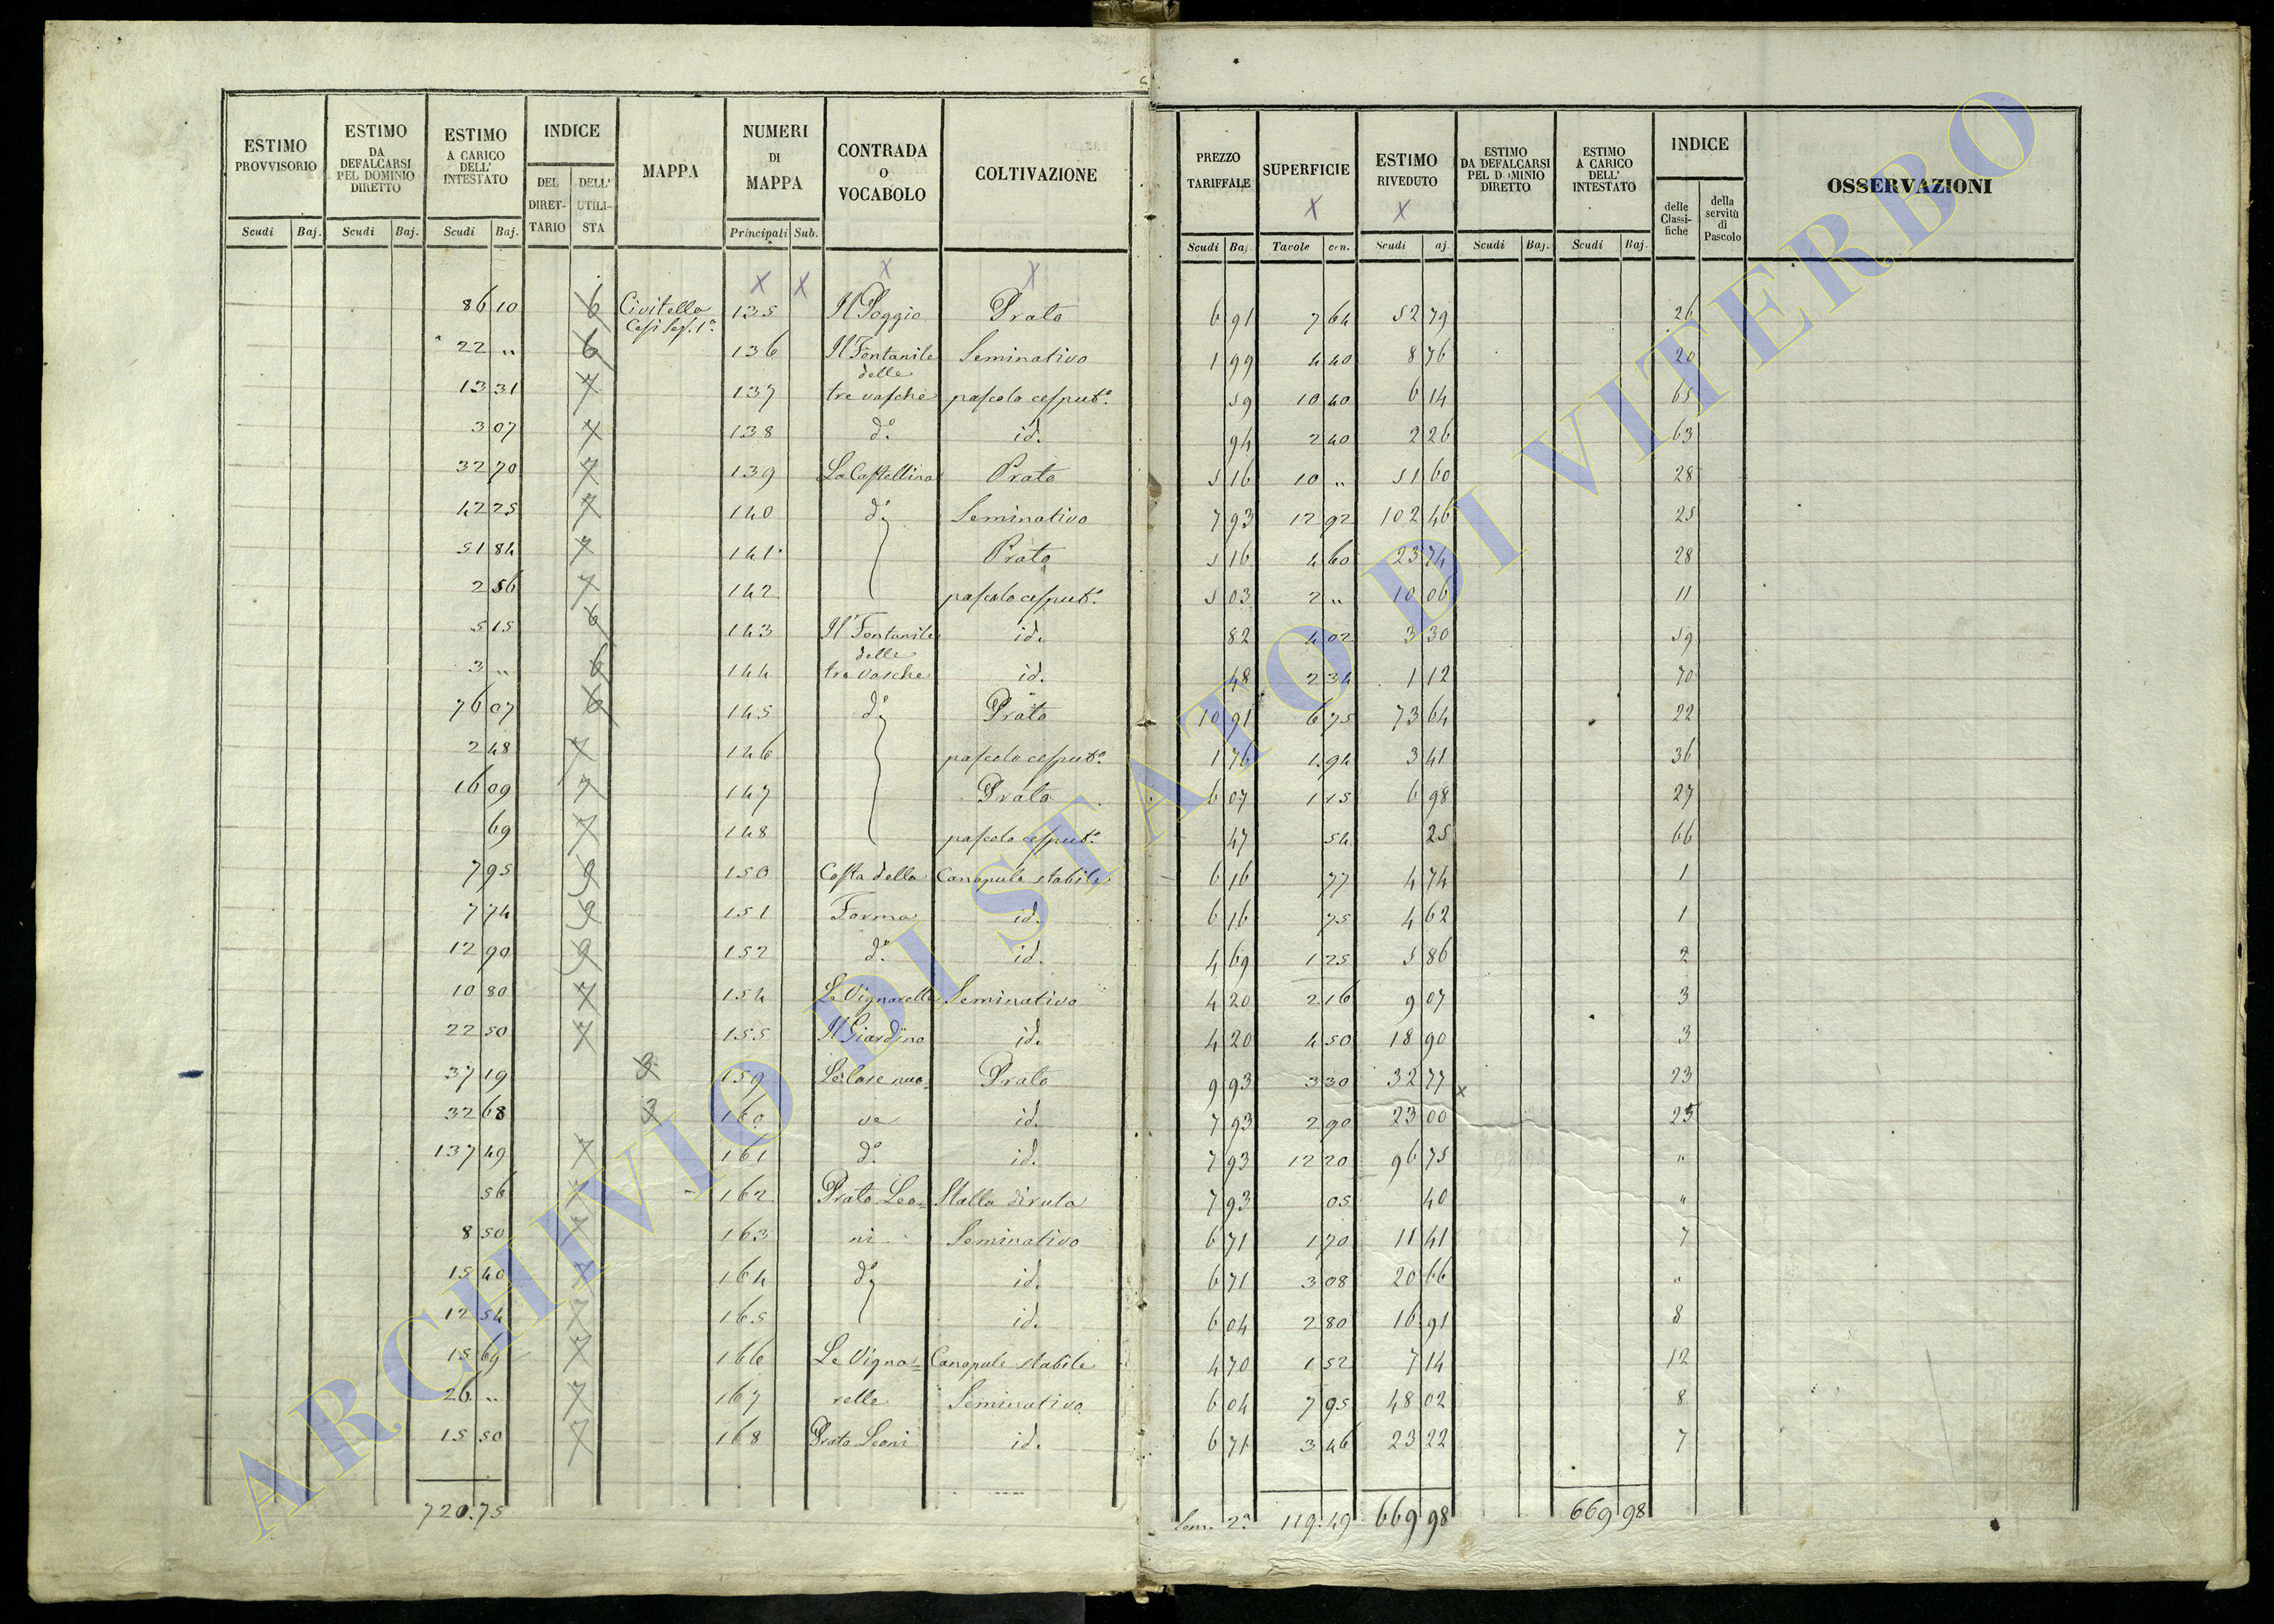 ESTIMO PROVVISORIO | ESTIMO DA DEFALCARSI PEL DOMINIO DIRETTO | ESTIMO A CARICO DELL' INTESTATO | INDICE | MAPPA | NUMERI DI MAPPA | CONTRADA O VOCABOLO | COLTIVAZIONE | PREZZO TARIFFALE | SUPERFICIE | ESTIMO RIVEDUTO | ESTIMO DA DEFALCARSI PEL DOMINIO DIRETTO | ESTIMO A CARICO DELL' INTESTATO | INDICE | OSSERVAZIONI
DEL DIRETTARIO | DELL' UTILISTA | delle Classifiche | della servitù di Pascolo
Scudi | Baj. | Scudi | Baj. | Scudi | Baj. | Principali | Sub. | Scudi | Baj. | Tavole | cen. | Scudi | aj. | Scudi | Baj. | Scudi | Baj.
X X X X X X
86 10 | 6 | Civitella Cesi Sez. 1ª | 135 | Il Poggio | Prato | 6 91 | 7 64 | 52 79 | 26
22 " | 6 | 136 | Il Fontanile | Seminativo | 1 99 | 4 40 | 8 76 | 20
13 31 | 7 | 137 | delle tre vasche | pascolo cesput.º | 59 | 10 40 | 6 14 | 65
3 07 | 7 | 138 | d.º | id. | 94 | 2 40 | 2 26 | 63
32 70 | 7 | 139 | La Castellina | Prato | 5 16 | 10 " | 51 60 | 28
42 25 | 7 | 140 | d.º | Seminativo | 7 93 | 12 92 | 102 46 | 25
51 84 | 7 | 141 | Prato | 5 16 | 4 60 | 23 74 | 28
2 56 | 7 | 142 | pascolo cesput.º | 5 03 | 2 " | 10 06 | 11
5 15 | 6 | 143 | Il Fontanile | id. | 82 | 4 02 | 3 30 | 59
3 " | 6 | 144 | delle tre vasche | id. | 48 | 2 34 | 1 12 | 70
76 07 | 6 | 145 | d.º | Prato | 10 91 | 6 75 | 73 64 | 22
2 48 | 7 | 146 | pascolo cesput.º | 1 76 | 1 94 | 3 41 | 36
16 09 | 7 | 147 | Prato | 6 07 | 1 15 | 6 98 | 27
69 | 7 | 148 | pascolo cesput.º | 47 | 54 | 25 | 66
7 95 | 9 | 150 | Costa della | Canapule stabile | 6 16 | 77 | 4 74 | 1
7 74 | 9 | 151 | Forma | id. | 6 16 | 75 | 4 62 | 1
12 90 | 9 | 152 | d.º | id. | 4 69 | 1 25 | 5 86 | 2
10 80 | 7 | 154 | Le Vignarelle | Seminativo | 4 20 | 2 16 | 9 07 | 3
22 50 | 7 | 155 | Il Giardino | id. | 4 20 | 4 50 | 18 90 | 3
37 19 | 159 | Le Case nuo= | Prato | 9 93 | 3 30 | 32 77 | x | 23
32 68 | 3 | 160 | ve | id. | 7 93 | 2 90 | 23 00 | 25
137 49 | 7 | 161 | d.º | id. | 7 93 | 12 20 | 96 75 | "
56 | 7 | 162 | Prato Leo= | Stalla diruta | 7 93 | 05 | 40 | "
8 50 | 7 | 163 | ni | Seminativo | 6 71 | 1 70 | 11 41 | 7
15 40 | 7 | 164 | d.º | id. | 6 71 | 3 08 | 20 66 | "
12 54 | 7 | 165 | id. | 6 04 | 2 80 | 16 91 | 8
15 69 | 7 | 166 | Le Vigna= | Canapule stabile | 4 70 | 1 52 | 7 14 | 12
26 " | 7 | 167 | relle | Seminativo | 6 04 | 7 95 | 48 02 | 8
15 50 | 7 | 168 | Prato Leoni | id. | 6 71 | 3 46 | 23 22 | 7
720.75 | 2ª | 119.49 | 669 98 | 669 98
ARCHIVIO DI STATO DI VITERBO